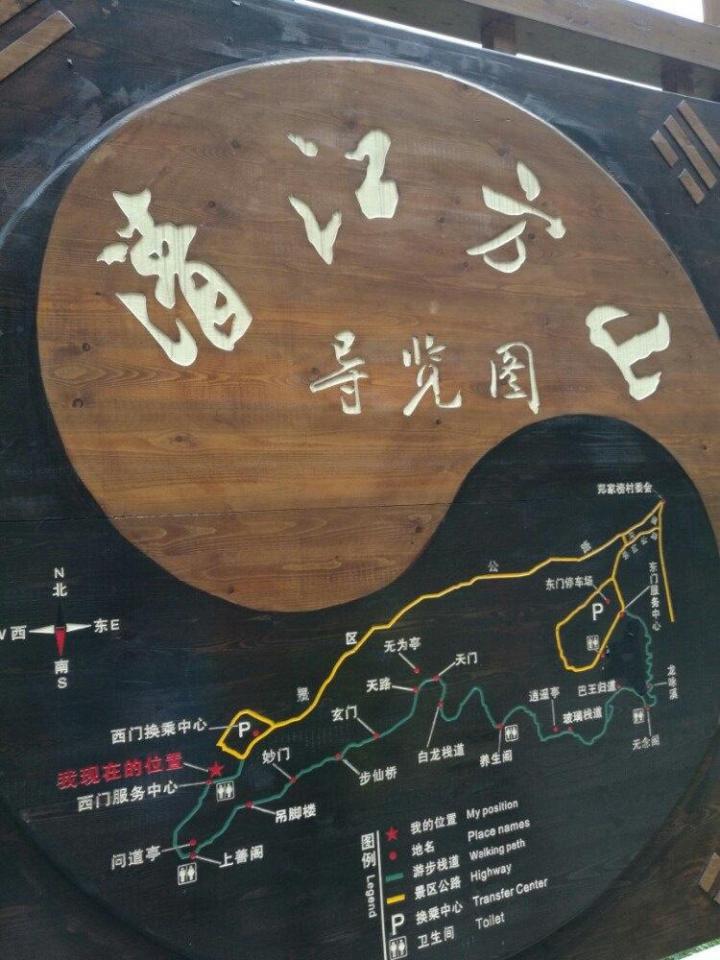 清江方山
导览图
郑家榜村委会
景区公路
东门停车场
P
东门服务中心
N
北
W西
东E
南
S
无为亭
天门
天路
龙咏溪
巴王归道
逍遥亭
玻璃栈道
无念阁
西门换乘中心
P
玄门
白龙栈道
养生阁
我现在的位置
西门服务中心
妙门
步仙桥
吊脚楼
问道亭
上善阁
图例 Legend
我的位置 My position
地名 Place names
游步栈道 Walking path
景区公路 Highway
P 换乘中心 Transfer Center
卫生间 Toilet